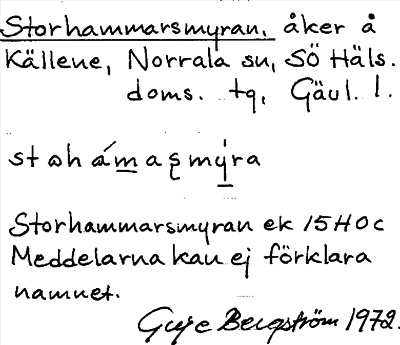 Storhammarsmyran, åker å
Källene, Norrala sn, SÖ Häls.
doms. tq, Gävl. l.
stɷhámas̨mýra
Storhammarsmyran ek 15H0c
Meddelarna kan ej förklara
namnet.
Bergström 1972.